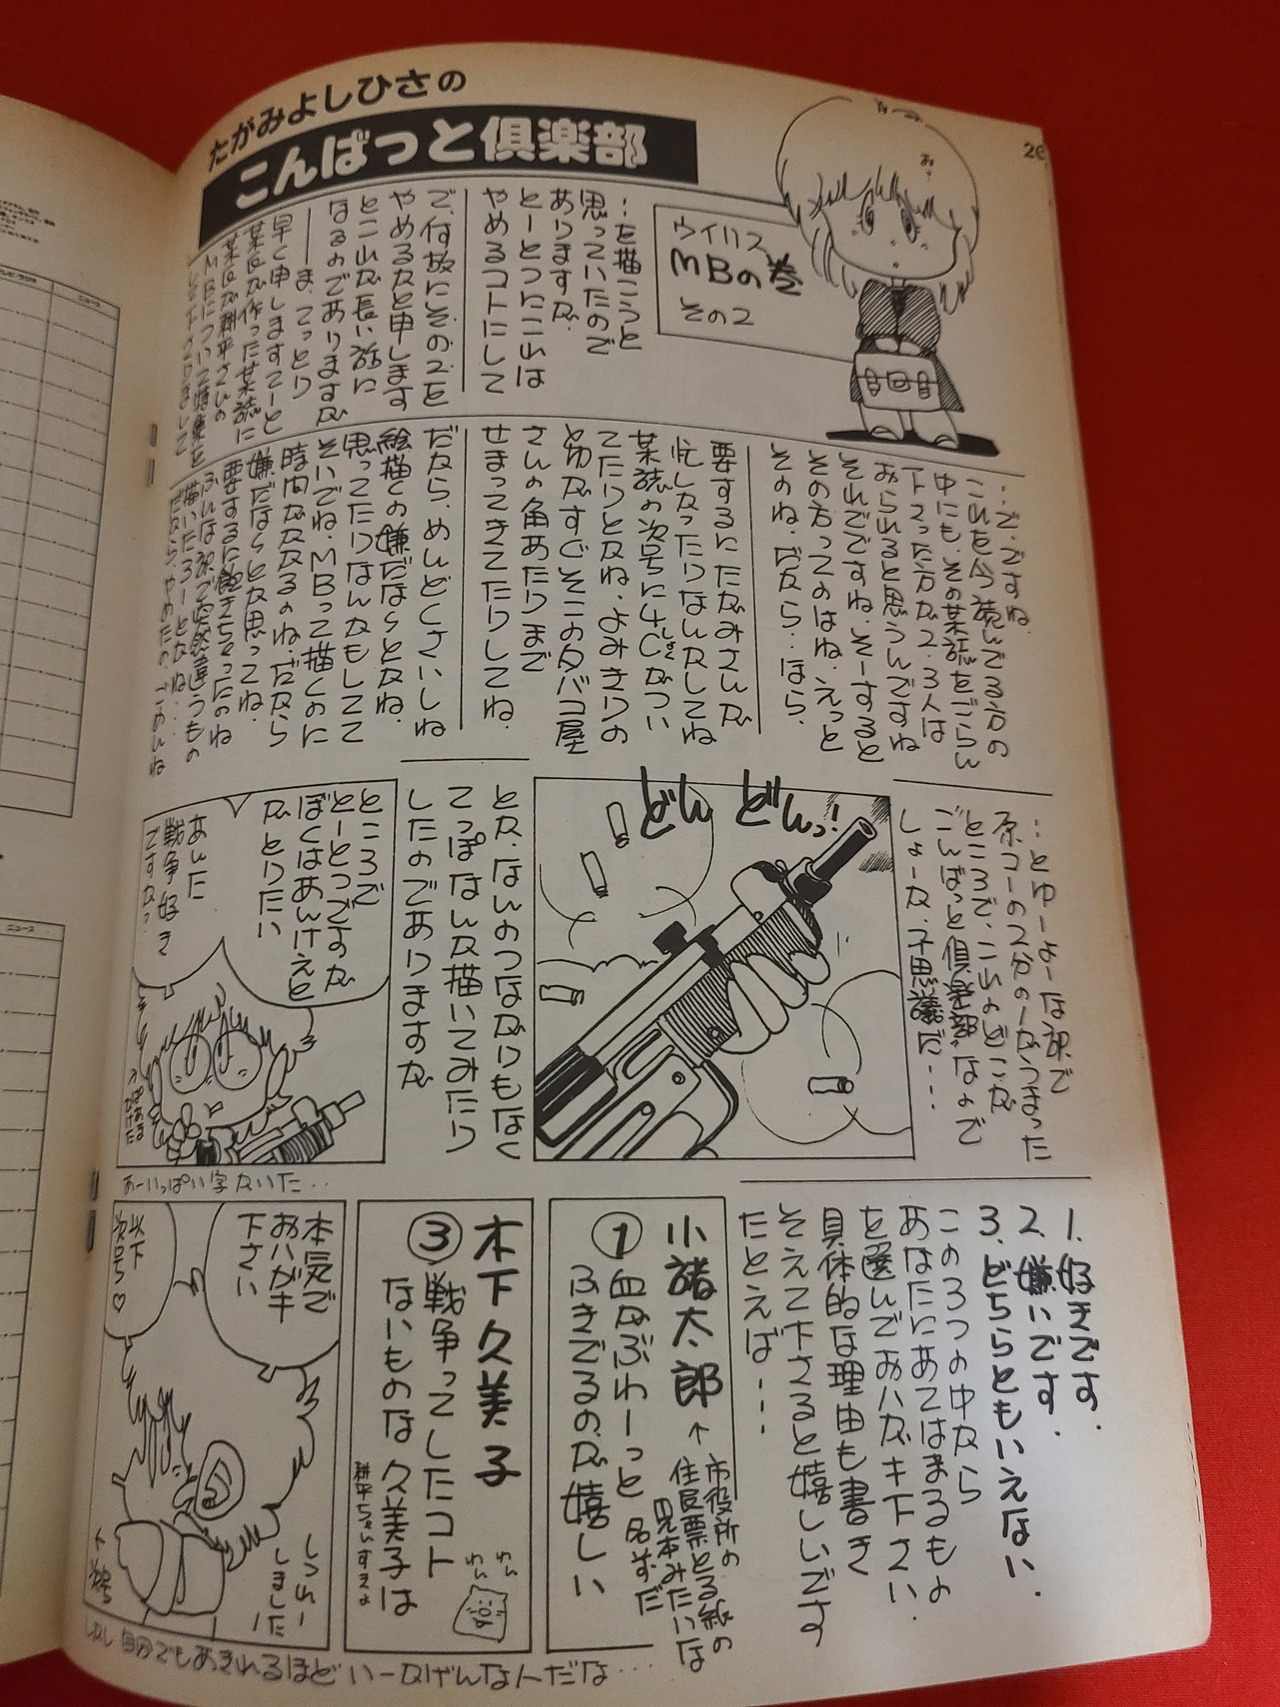 たがみよしひさの
こんばっと倶楽部
26
お?
ウイルス
MBの巻
その2
…を描こうと
思っていたので
ありますが、
とーとつにこれは
やめるコトにして
で、何故にその2を
やめるかと申します
とこれが長い話に
なるのでありますが
ま、てっとり
早く申しますてーと
某氏が作った某誌に
某氏が耕平さいの
MBについて特集を
…で、ですね、
これを今読んでる方の
中にも、その某誌をごらん
下さった方が2、3人は
おられると思うんですね
それでですね、そーすると
その方ってのはね、えっと
そのね、だから…ほら、
要するにたがみさんが
忙しかったりなんかしてね
某誌の次号に4Cがつい
しょく
てたりとかね、よみきりの
〆切がすぐそこのタバコ屋
さんの角あたりまで
せまってきてたりしてね、
だから、めんどくさいしね
絵描くの嫌だな〜とかね、
思ってたりなんかもしてて
そいでね、MBって描くのに
時間がかかるのね、だから
嫌だな〜とか思ってね、
要するに飽きちゃったのね
ふんな訳で突然違うもの
描いたろーとかね…
だから、やめたの、ごめんね
…とゆーよーな訳で
原コーの2分の1がうまった
ところで、これのどこが
"こんばっと倶楽部"なんで
しょーか、不思議だ…
どん どんっ!
とか、なんのつながりもなく
てっぽなんか描いてみたり
したのでありますが
ところで
とーとつですが
ぼくはあんけえと
がとりたい
あんた
戦争好き
ですか?
あーいっぱい字かいた…
1、好きです、
2、嫌いです、
3、どちらともいえない、
この3つの中から
あなたにあてはまるもの
を選んでおハガキ下さい、
具体的な理由も書き
そえて下さると嬉しいです
たとえば…
小諸太郎
←市役所の
住民票とる紙の
見本みたいな
名前だ
①血がぶわーっと
ふきでるのが嬉しい
木下久美子
③戦争ってしたコト
ないものな 久美子は
耕平ちゃんすきよ
わん
わん
本気で
おハガキ
下さい
以下
次号♡
しつれー
しました
しかし自分でもあきれるほどいーかげんな人だな…